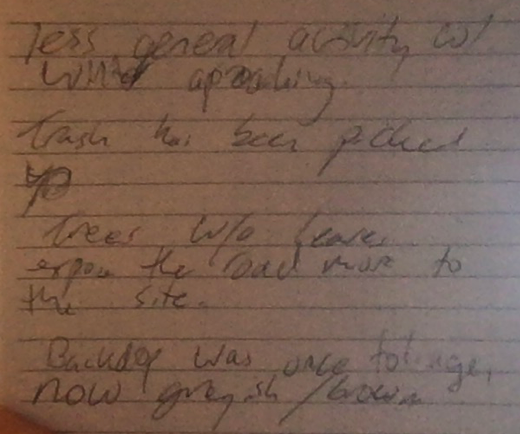 less general activity w/
wind aproaching.
Trash has been picked
up
Trees w/o leaves
expose the road more to
the site.
Backdop was once foliage,
now greyish/brown